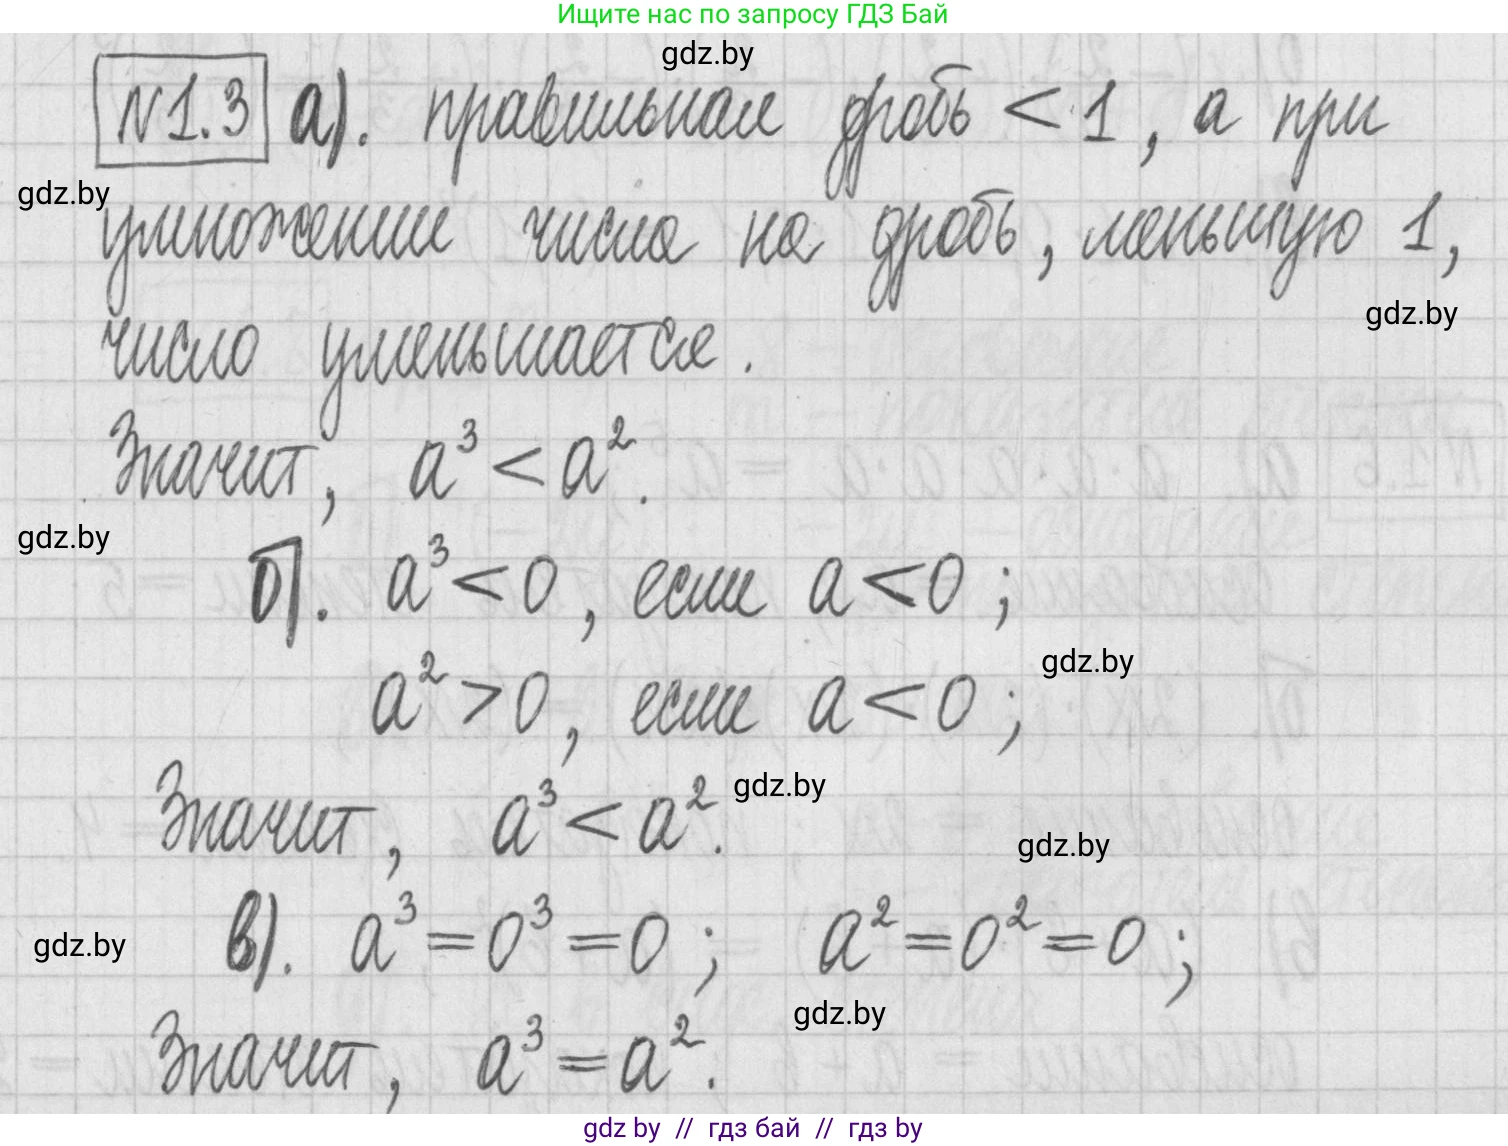 Ищите нас по запросу ГДЗ Бай
gdz.by
N1.3 а). правильная дробь < 1, а при
gdz.by
умножении числа на дробь, меньшую 1,
gdz.by
число уменьшается.
Значит, a³ < a².
gdz.by
б). a³ < 0, если a < 0;
gdz.by
a² > 0, если a < 0;
gdz.by
Значит, a³ < a².
gdz.by
в). a³ = 0³ = 0; a² = 0² = 0;
gdz.by
gdz.by
Значит, a³ = a².
gdz by // гдз бай // гдз by